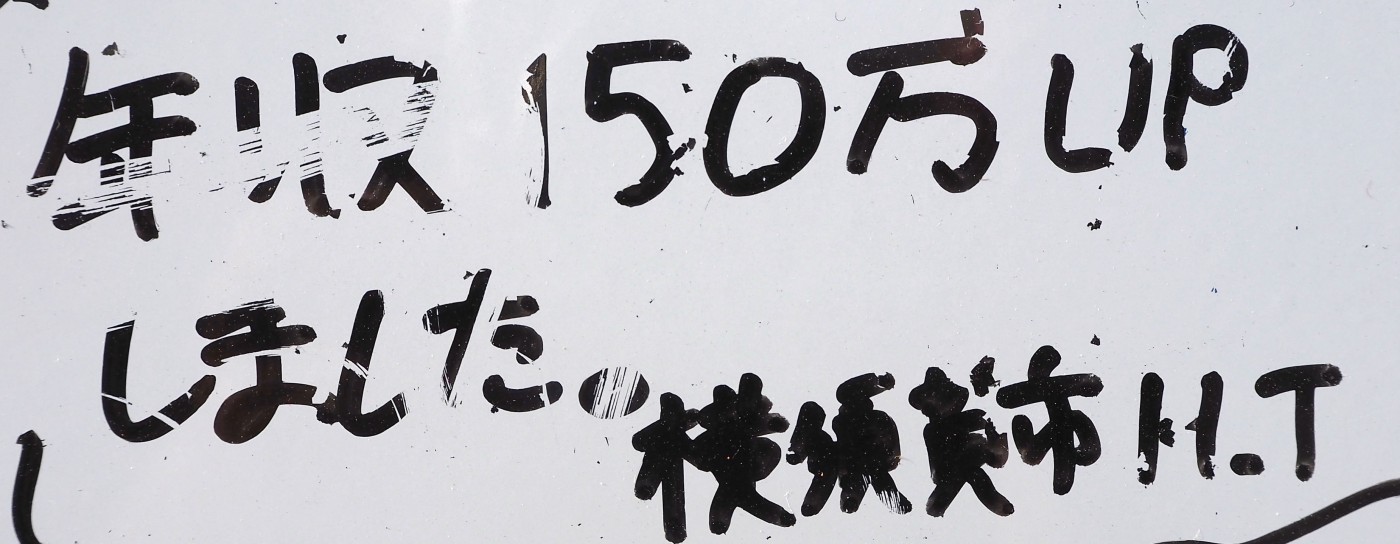 年収150万UP
しました。
横須賀市H.T